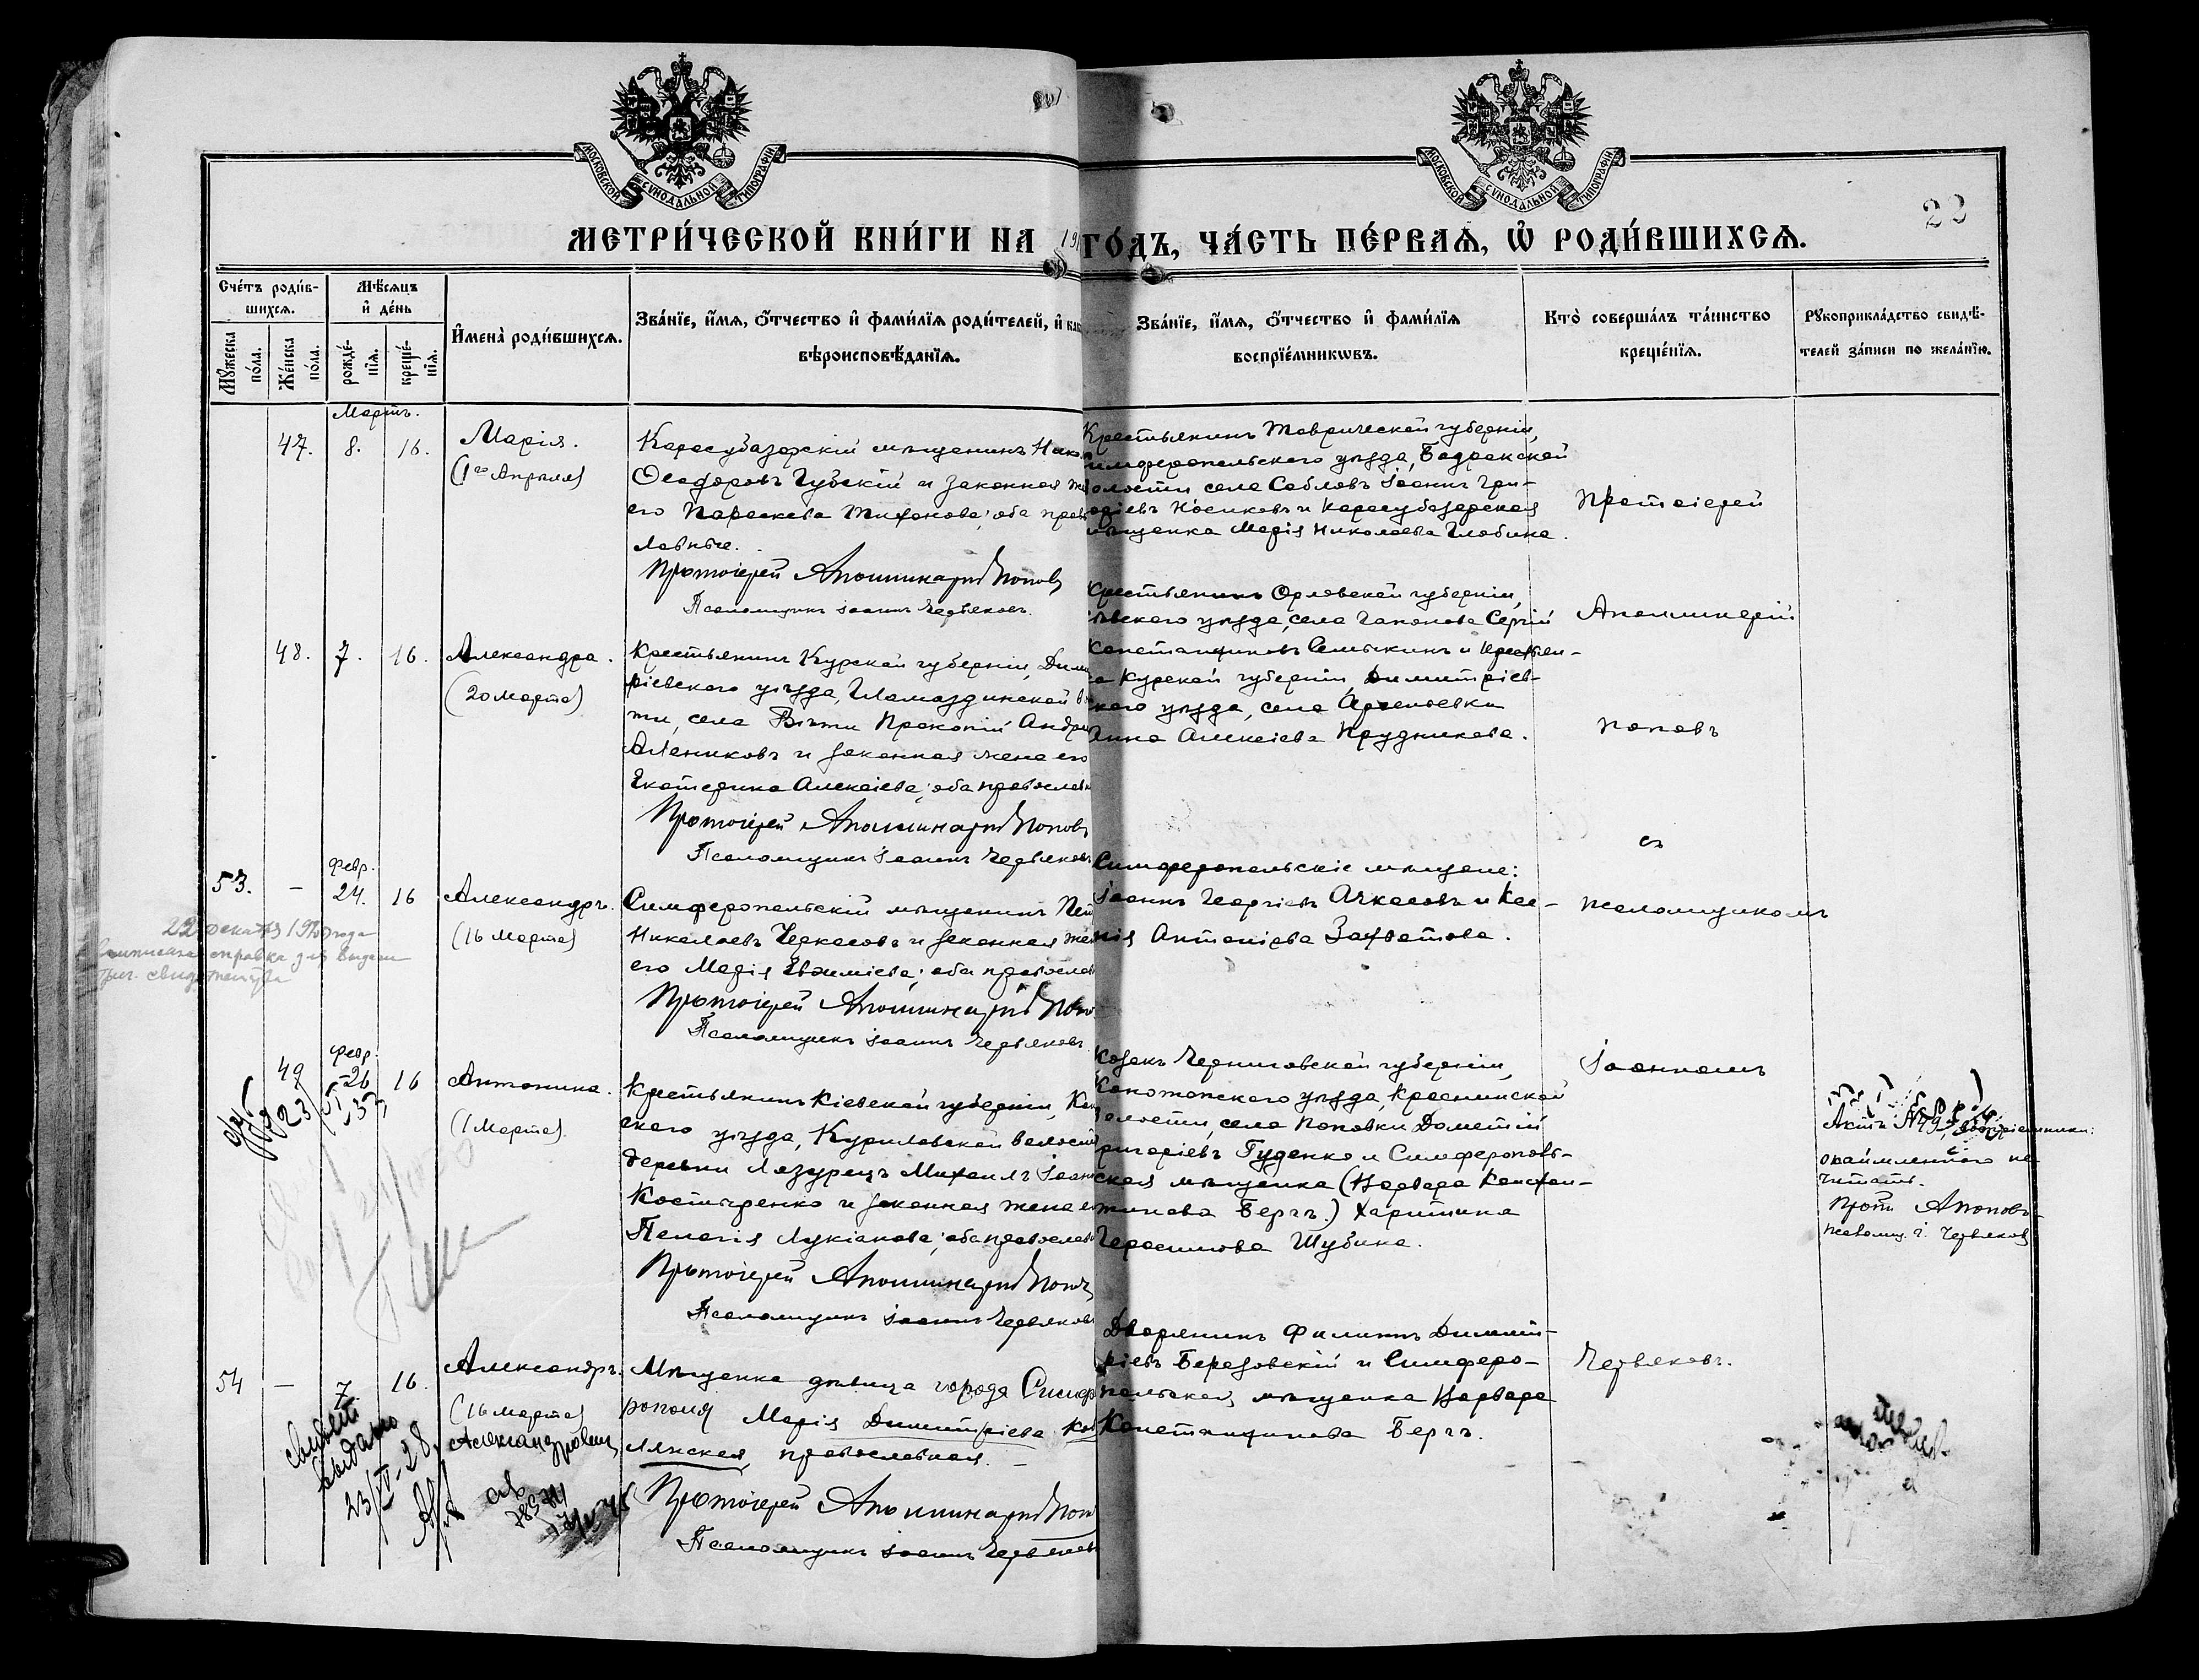 МОСКОВСКОЙ СУНОДАЛЬНОЙ ТИПОГРАФІИ
МОСКОВСКОЙ СУНОДАЛЬНОЙ ТИПОГРАФІИ
МЕТРИ́ЧЕСКОЙ КНИ́ГИ НА 191
ГО́ДЪ, ЧА́СТЬ ПЕ́РВАѦ, Ѡ҆ РОДИ́ВШИХСѦ.
Сче́тъ роди́в-
шихсѧ.
Мѣ́сѧцъ
и҆ де́нь
Мꙋ́жеска
по́ла.
Же́нска
по́ла.
рожде́-
нїѧ.
креще́-
нїѧ.
И҆мена̀ роди́вшихсѧ.
Зва́нїе, и҆́мѧ, ѻ҆́тчество и҆ фами́лїѧ роди́телей, и҆ как
вѣроисповѣ́данїѧ.
Зва́нїе, и҆́мѧ, ѻ҆́тчество и҆ фами́лїѧ
воспрїе́мникѡвъ.
Кто̀ соверша́лъ та́инство
креще́нїѧ.
Рꙋкоприкла́дство свидѣ́-
телей за́писи по жела́нїю.
Мартъ.
47.
8.
16.
Марія.
(1го Апрѣля)
Карасубазарскій мѣщанинъ Нико
Ѳеодоровъ Губскій и законная же
его Параскева Тихонова; оба прав
лавные.
Протоіерей Аполлинарій Поповъ
Псаломщикъ Іоаннъ Червяковъ.
Крестьянинъ Таврической губерніи,
имферопольскаго уѣзда, Бадракской
олости села Саблов Іоаннъ Гри-
оріевъ Носиковъ и Карасубазарская
мѣщанка Марія Николаева Глобина.
48.
7.
16.
Александра.
(20 марта)
Крестьянинъ Курской губерніи, Дими
ріевскаго уѣзда, Гламаздинской во
ти, села Вѣти Прокопій Андре
Алениковъ и законная жена его
Екатерина Алексіева; оба православн
Протоіерей Аполлинарій Поповъ
Псаломщикъ Іоаннъ Червяковъ
Крестьянинъ Орловской губерніи,
уѣзда, села Гапонова Сергій
Константиновъ Семыкинъ и крестьян-
а Курской губерніи, Димитріев-
каго уѣзда, села Арсеньевки
Анна Алексіева Прудникова.
53.
–
февр.
24.
16
Александръ.
(16 марта)
Симферопольскій мѣщанинъ Пет
Николаевъ Черкасовъ и законная же
его Марія Евѳиміева; оба православ
Протоіерей Аполлинарій Попо
Псаломщикъ Іоаннъ Червяковъ
Симферопольскіе мѣщане:
Іоаннъ Георгіевъ Ачкасовъ и Ксе-
нія Антоніева Захватова.
22 декабря
справка для выдачи
49
февр.
26
16
Антонина.
(1 Марта)
Крестьянинъ Кіевской губерніи, Кан
скаго уѣзда, Куриловской волости
деревни Лазурецъ Михаилъ Іоанн
Костыренко и законная жена е
Пелагія Лукіанова; оба православн
Протоіерей Аполлинарій Поповъ
Псаломщикъ Іоаннъ Червяковъ
Козакъ Черниговской губерніи,
Конотопскаго уѣзда, Краснянской
олости, села Поповки Дометій
ригоріевъ Гуденко и Симферополь-
ская мѣщанка (Варвара Констан-
тинова Бергъ.) Харитина
Герасимова Шубина.
Актъ №49
не
читать.
Прот. А Поповъ
псаломщ. І. Червяковъ
54
–
7.
16.
Александръ.
(16 марта)
Александровичъ
Мѣщанка дѣвица города Симфе
рополя Марія Димитріева Ков
лянская, православная. –
Протоіерей Аполлинарій Попо
Псаломщикъ Іоаннъ Червяковъ
Дворянинъ Филиппъ Димит-
ріевъ Березовскій и Симферо-
польская мѣщанка Варвара
Константинова Бергъ.
выдано
23/IV-28
Протоіерей
Аполлинарій
Поповъ
съ
псаломщикомъ
Іоанномъ
Червяковъ.